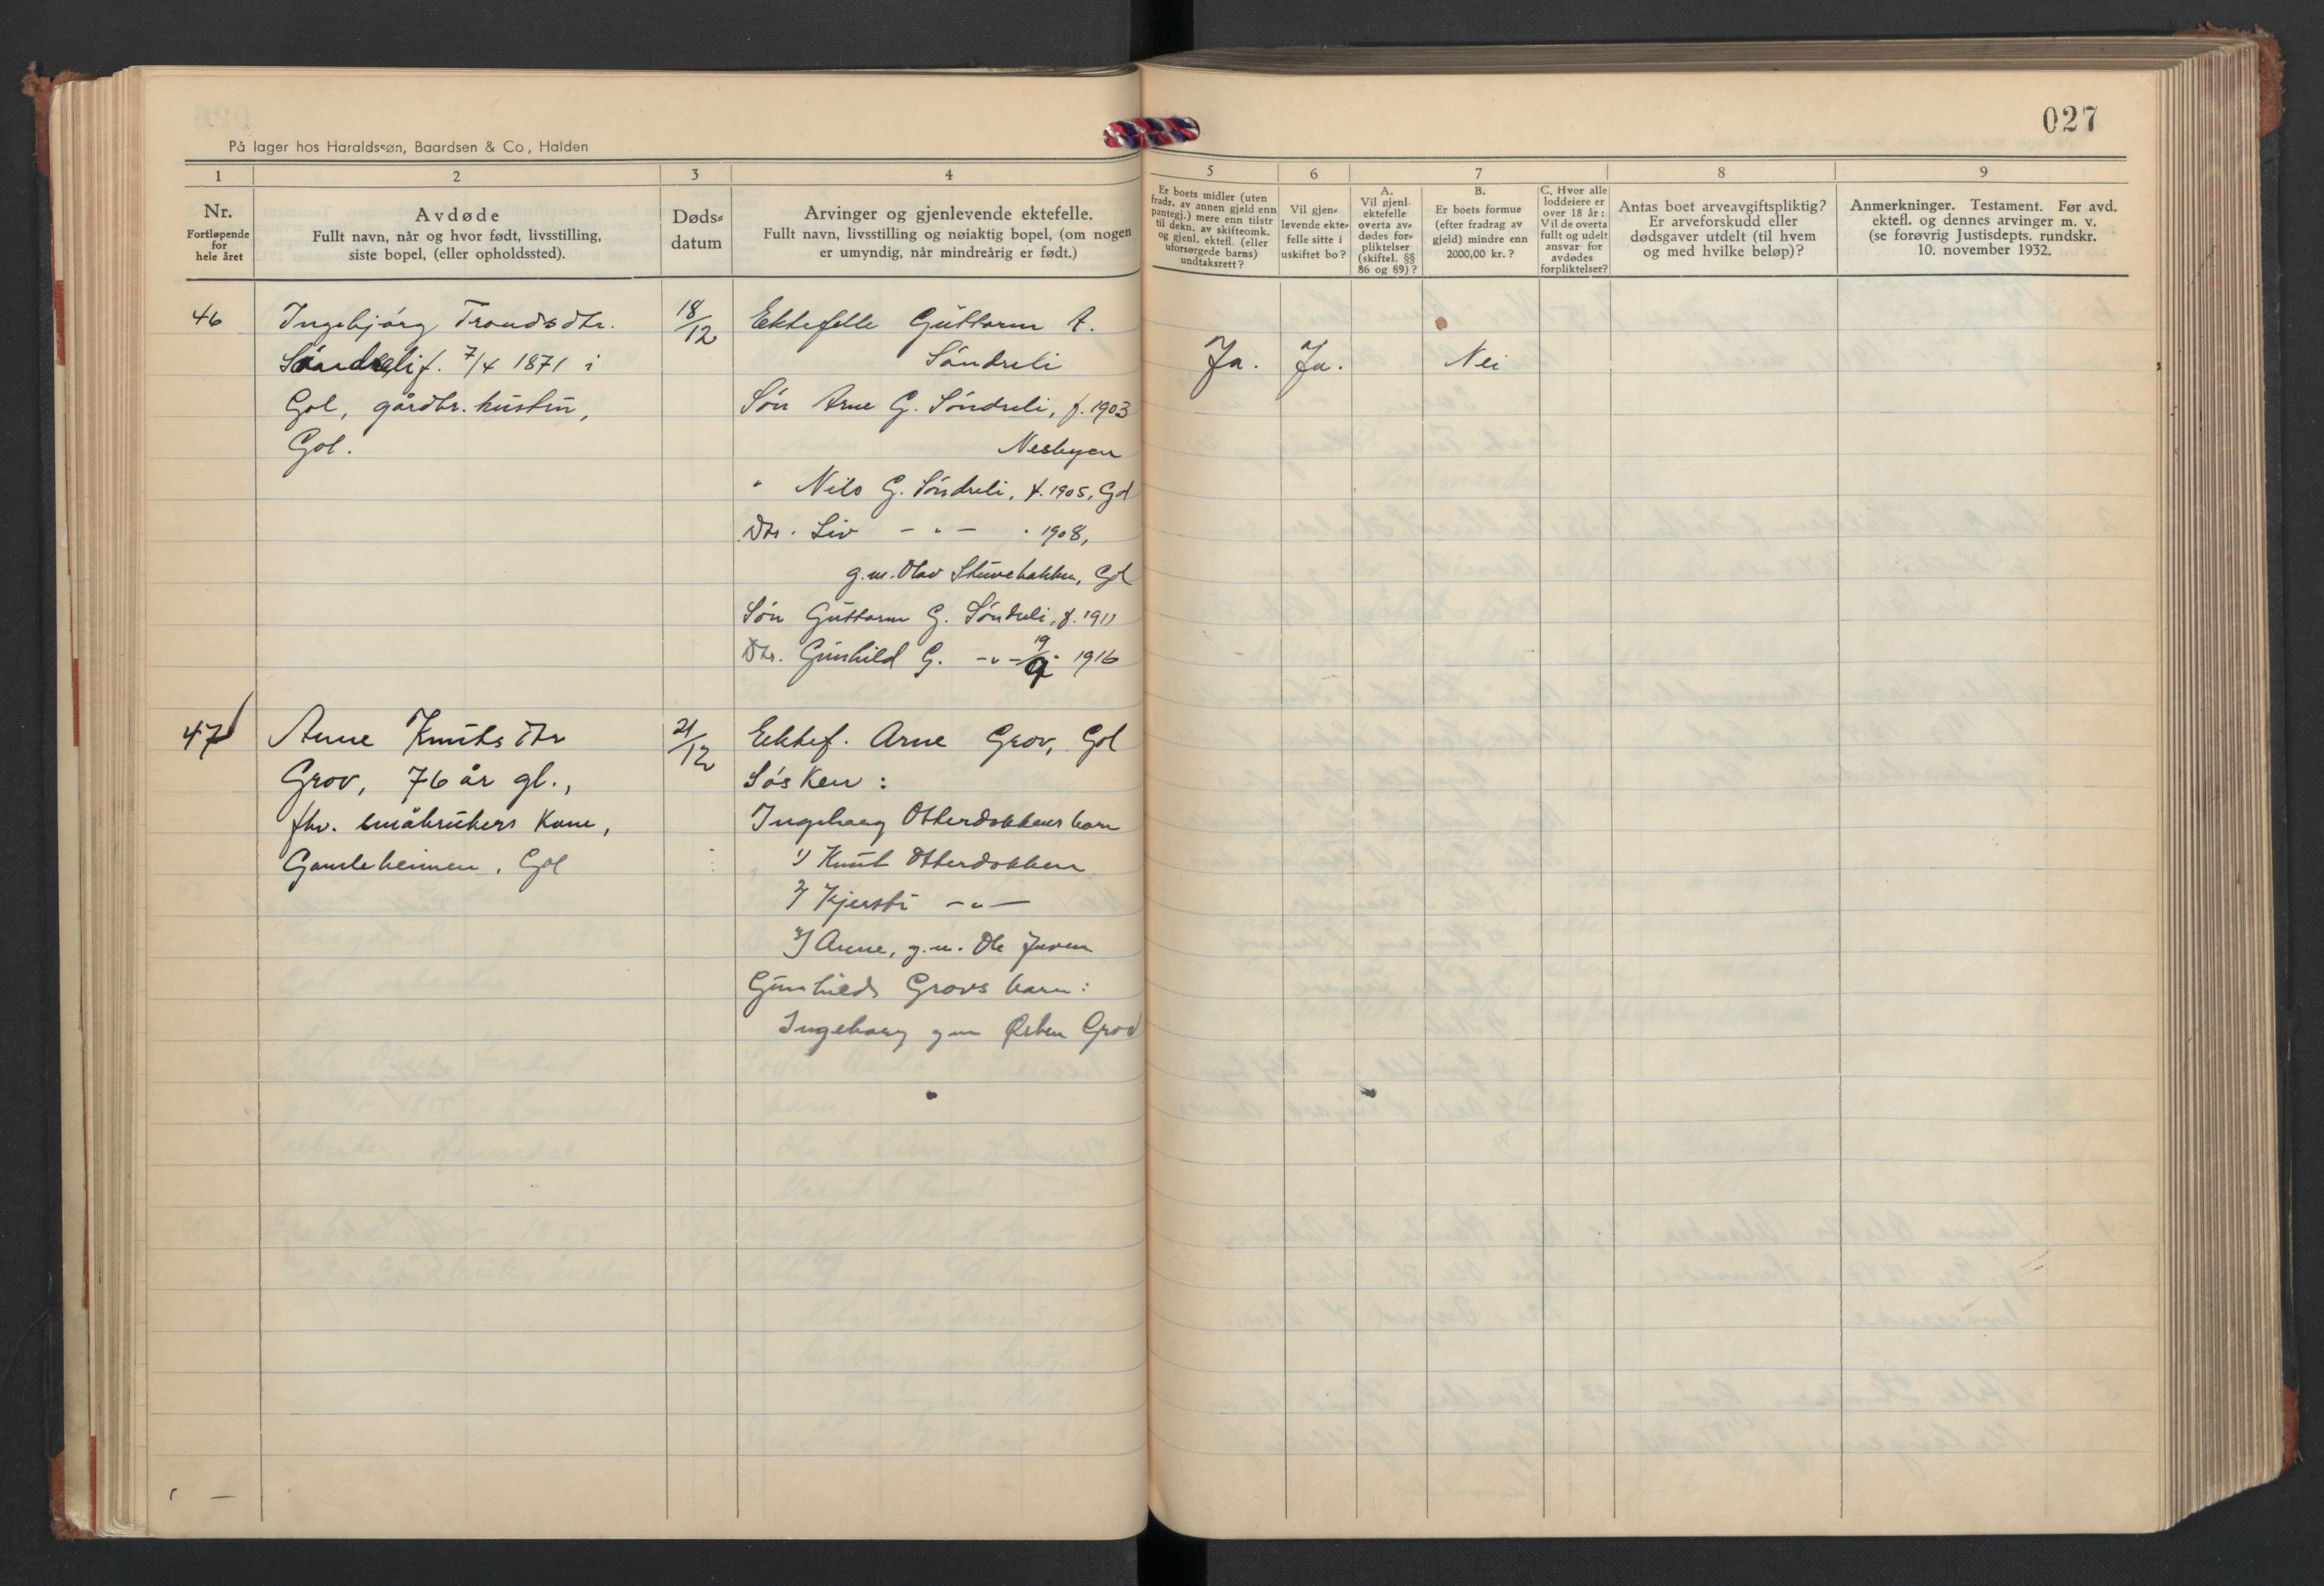 027
På lager hos Haraldssøn, Baardsen & Co, Halden
1 2 3 4 5 6 7 8 9
Nr.
Fortløpende
for
hele året
Avdøde
Fullt navn, når og hvor født, livsstilling,
siste bopel, (eller opholdssted).
Døds-
datum
Arvinger og gjenlevende ektefelle.
Fullt navn, livsstilling og nøiaktig bopel, (om nogen
er umyndig, når mindreårig er født.)
Er boets midler (uten
fradr. av annen gjeld enn
pantegj.) mere enn tilstr.
til dekn. av skifteomk.
og gjenl. ektefl. (eller
uforsørgede barns)
undtaksrett?
Vil gjen-
levende ekte-
felle sitte i
uskiftet bo?
A.
Vil gjenl.
ektefelle
overta av-
dødes for-
pliktelser
(skiftel. §§
86 og 89)?
B.
Er boets formue
(efter fradrag av
gjeld) mindre enn
2000,00 kr.?
C. Hvor alle
loddeiere er
over 18 år:
Vil de overta
fullt og udelt
ansvar for
avdødes
forpliktelser?
Antas boet arveavgiftspliktig?
Er arveforskudd eller
dødsgaver utdelt (til hvem
og med hvilke beløp)?
Anmerkninger. Testament. Før avd.
ektefl. og dennes arvinger m. v.
(se forøvrig Justisdepts. rundskr.
10. november 1932.
46
Ingebjørg Trondsdtr.
Søndreli f. 7/4 1871 i
Gol, gårdbr. hustru,
Gol.
18/12
Ektefelle Guttorm A.
Søndreli
Søn Arne G. Søndreli, f. 1903
Nesbyen
" Nils G. Søndreli, f. 1905, Gol
Dtr. Liv - " - " 1908,
g.m. Olav Stuvebakken, Gol
Søn Guttorm G. Søndreli, f. 1911
Dtr. Gunhild G. - " - 19/9 1916
Ja. Ja. Nei
47
Anne Knutsdtr
Grov, 76 år gl.,
fhv. småbrukers kone,
Gamleheimen, Gol
21/12
Ektef. Arne Grov, Gol
Søsken:
Ingeborg Otterdokkens barn
1) Knut Otterdokken
2) Kjersti - " -
3) Anne, g.m. Ole Juven
Gunhilds Grovs barn:
Ingeborg gm Østen Grov